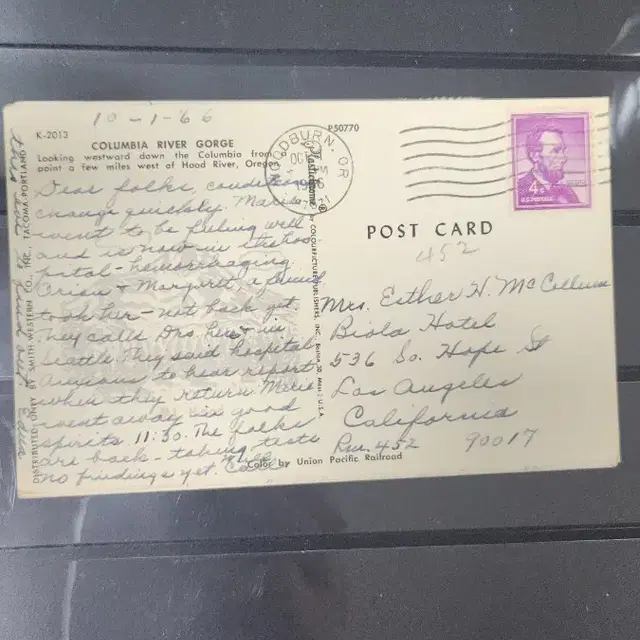 10-1-66
K-2013
P50770
COLUMBIA RIVER GORGE
Looking westward down the Columbia from
point a few miles west of Hood River, Oregon
Dear folks, conditions
change quickly. Marie
went to be feeling well
and is now in the hos-
pital - hemorrhaging.
Orian & Margaret, a friend
took her - not back yet.
They calls Drs. here & in
Seattle. They said hospital
Anxious to hear report
when they return. Marie
went away in good
spirits. 11:30. The folks
are back - taking tests
no findings yet.
Edna
DISTRIBUTED ONLY BY SMITH WESTERN CO., INC., TACOMA-PORTLAND
Plastichrome ®
BY COLOURPICTURE PUBLISHERS, INC., BOSTON 30, MASS., U.S.A.
WOODBURN, OR
OCT
PM
1966
4¢
U.S. POSTAGE
POST CARD
452
Mrs. Esther H. McCollum
Biola Hotel
536 So. Hope St
Los Angeles
California
Rm. 452 90017
Color by Union Pacific Railroad